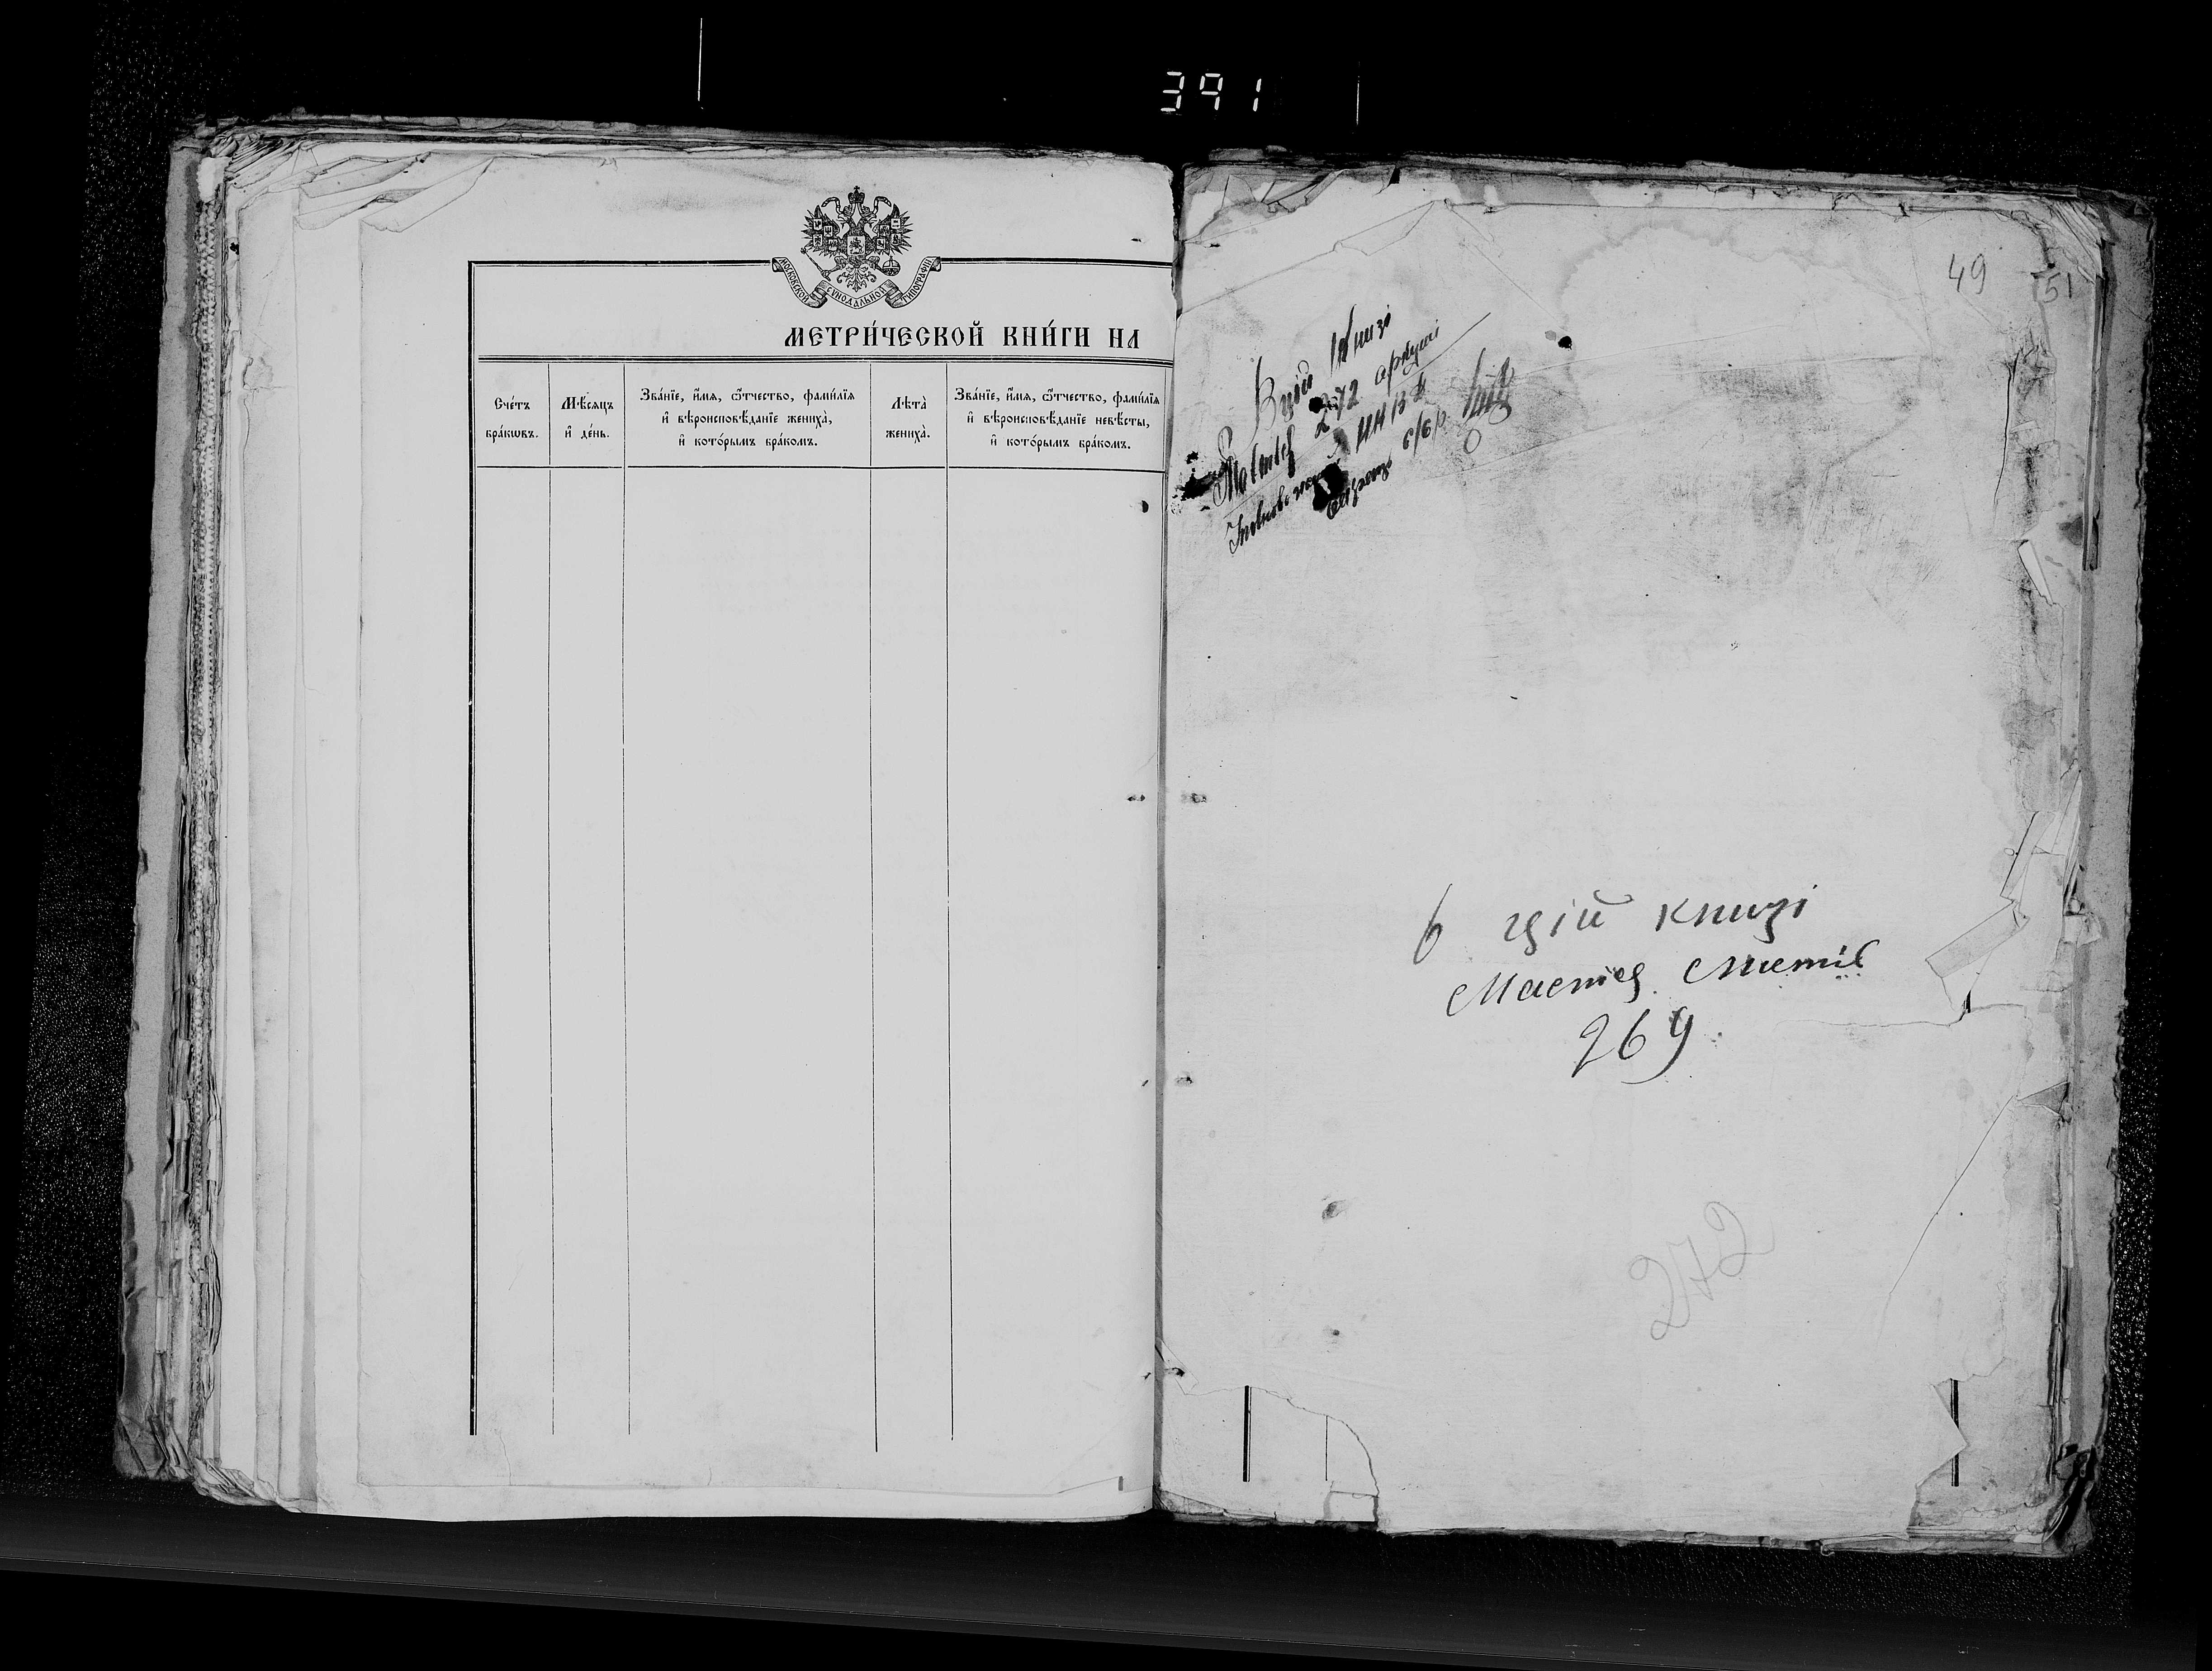 391
МОСКОВСКОЙ СѴНОДАЛЬНОЙ ТИПОГРАФІИ
МЕТРИ́ЧЕСКОЙ КНИ́ГИ НА
Сче́тъ бра́кѡвъ.
Мѣ́сѧцъ и҆ де́нь.
Зва́нїе, и҆́мѧ, ѻ҆́тчество, фами́лїѧ
и҆ вѣроисповѣ́данїе жениха̀,
и҆ кото́рымъ бра́комъ.
Лѣта̀
жениха̀.
Зва́нїе, и҆́мѧ, ѻ҆́тчество, фами́лїѧ
и҆ вѣроисповѣ́данїе невѣ́сты,
и҆ кото́рымъ бра́комъ.
49
51
В цій Книзі
272 аркуші
с/р
В цій книзі
Мастец листів
269
272